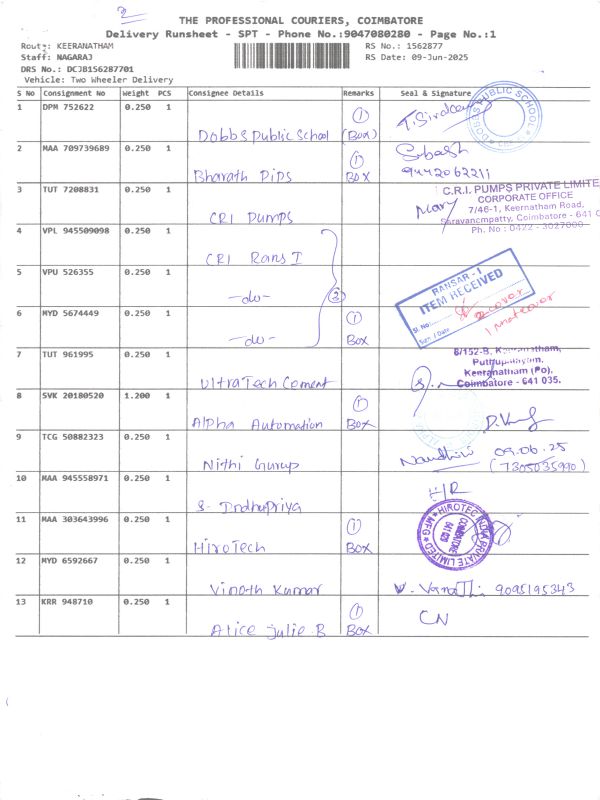 2
THE PROFESSIONAL COURIERS, COIMBATORE
Delivery Runsheet - SPT - Phone No.:9047080280 - Page No.:1
Route: KEERANATHAM
RS No.: 1562877
Staff: NAGARAJ
RS Date: 09-Jun-2025
DRS No.: DCJB156287701
Vehicle: Two Wheeler Delivery
S No Consignment No Weight PCS Consignee Details Remarks Seal & Signature
1 DPM 752622 0.250 1 Dobbs Public School 1 (Box)
DOBBS PUBLIC SCHOOL
2 MAA 709739689 0.250 1 Bharath Pips 1 Box Subash
9442062211
3 TUT 7208831 0.250 1 CRI Pumps Mary
C.R.I. PUMPS PRIVATE LIMITE
CORPORATE OFFICE
7/46-1, Keernatham Road,
Saravancmpatty, Coimbatore - 641 0
Ph. No : 0422 - 3027000
4 VPL 945509098 0.250 1 CRI Rans I
5 VPU 526355 0.250 1 -do- 3
RANSAR - 1
ITEM RECEIVED
Sl. No:
Sign / Date
2 cover
1 mateover
6 MYD 5674449 0.250 1 -do- 1 Box
7 TUT 961995 0.250 1 UltraTech Cement
8/152-B, Keeranatham,
Puthupalayam,
Keeranatham (Po),
Coimbatore - 641 035.
8 SVK 20180520 1.200 1 Alpha Automation 1 Box
9 TCG 50882323 0.250 1 Nithi Gurup Nandhini 09.06.25
(7305035990)
10 MAA 945558971 0.250 1 S. Indhupriya H/R
11 MAA 303643996 0.250 1 HiroTech 1 Box
HIROTEC INDIA PRIVATE LIMITED MFG
COIMBATORE
641 035
12 MYD 6592667 0.250 1 Vinoth Kumar V. Vanathi 9095195343
13 KRR 948710 0.250 1 Alice Julie B 1 Box CN